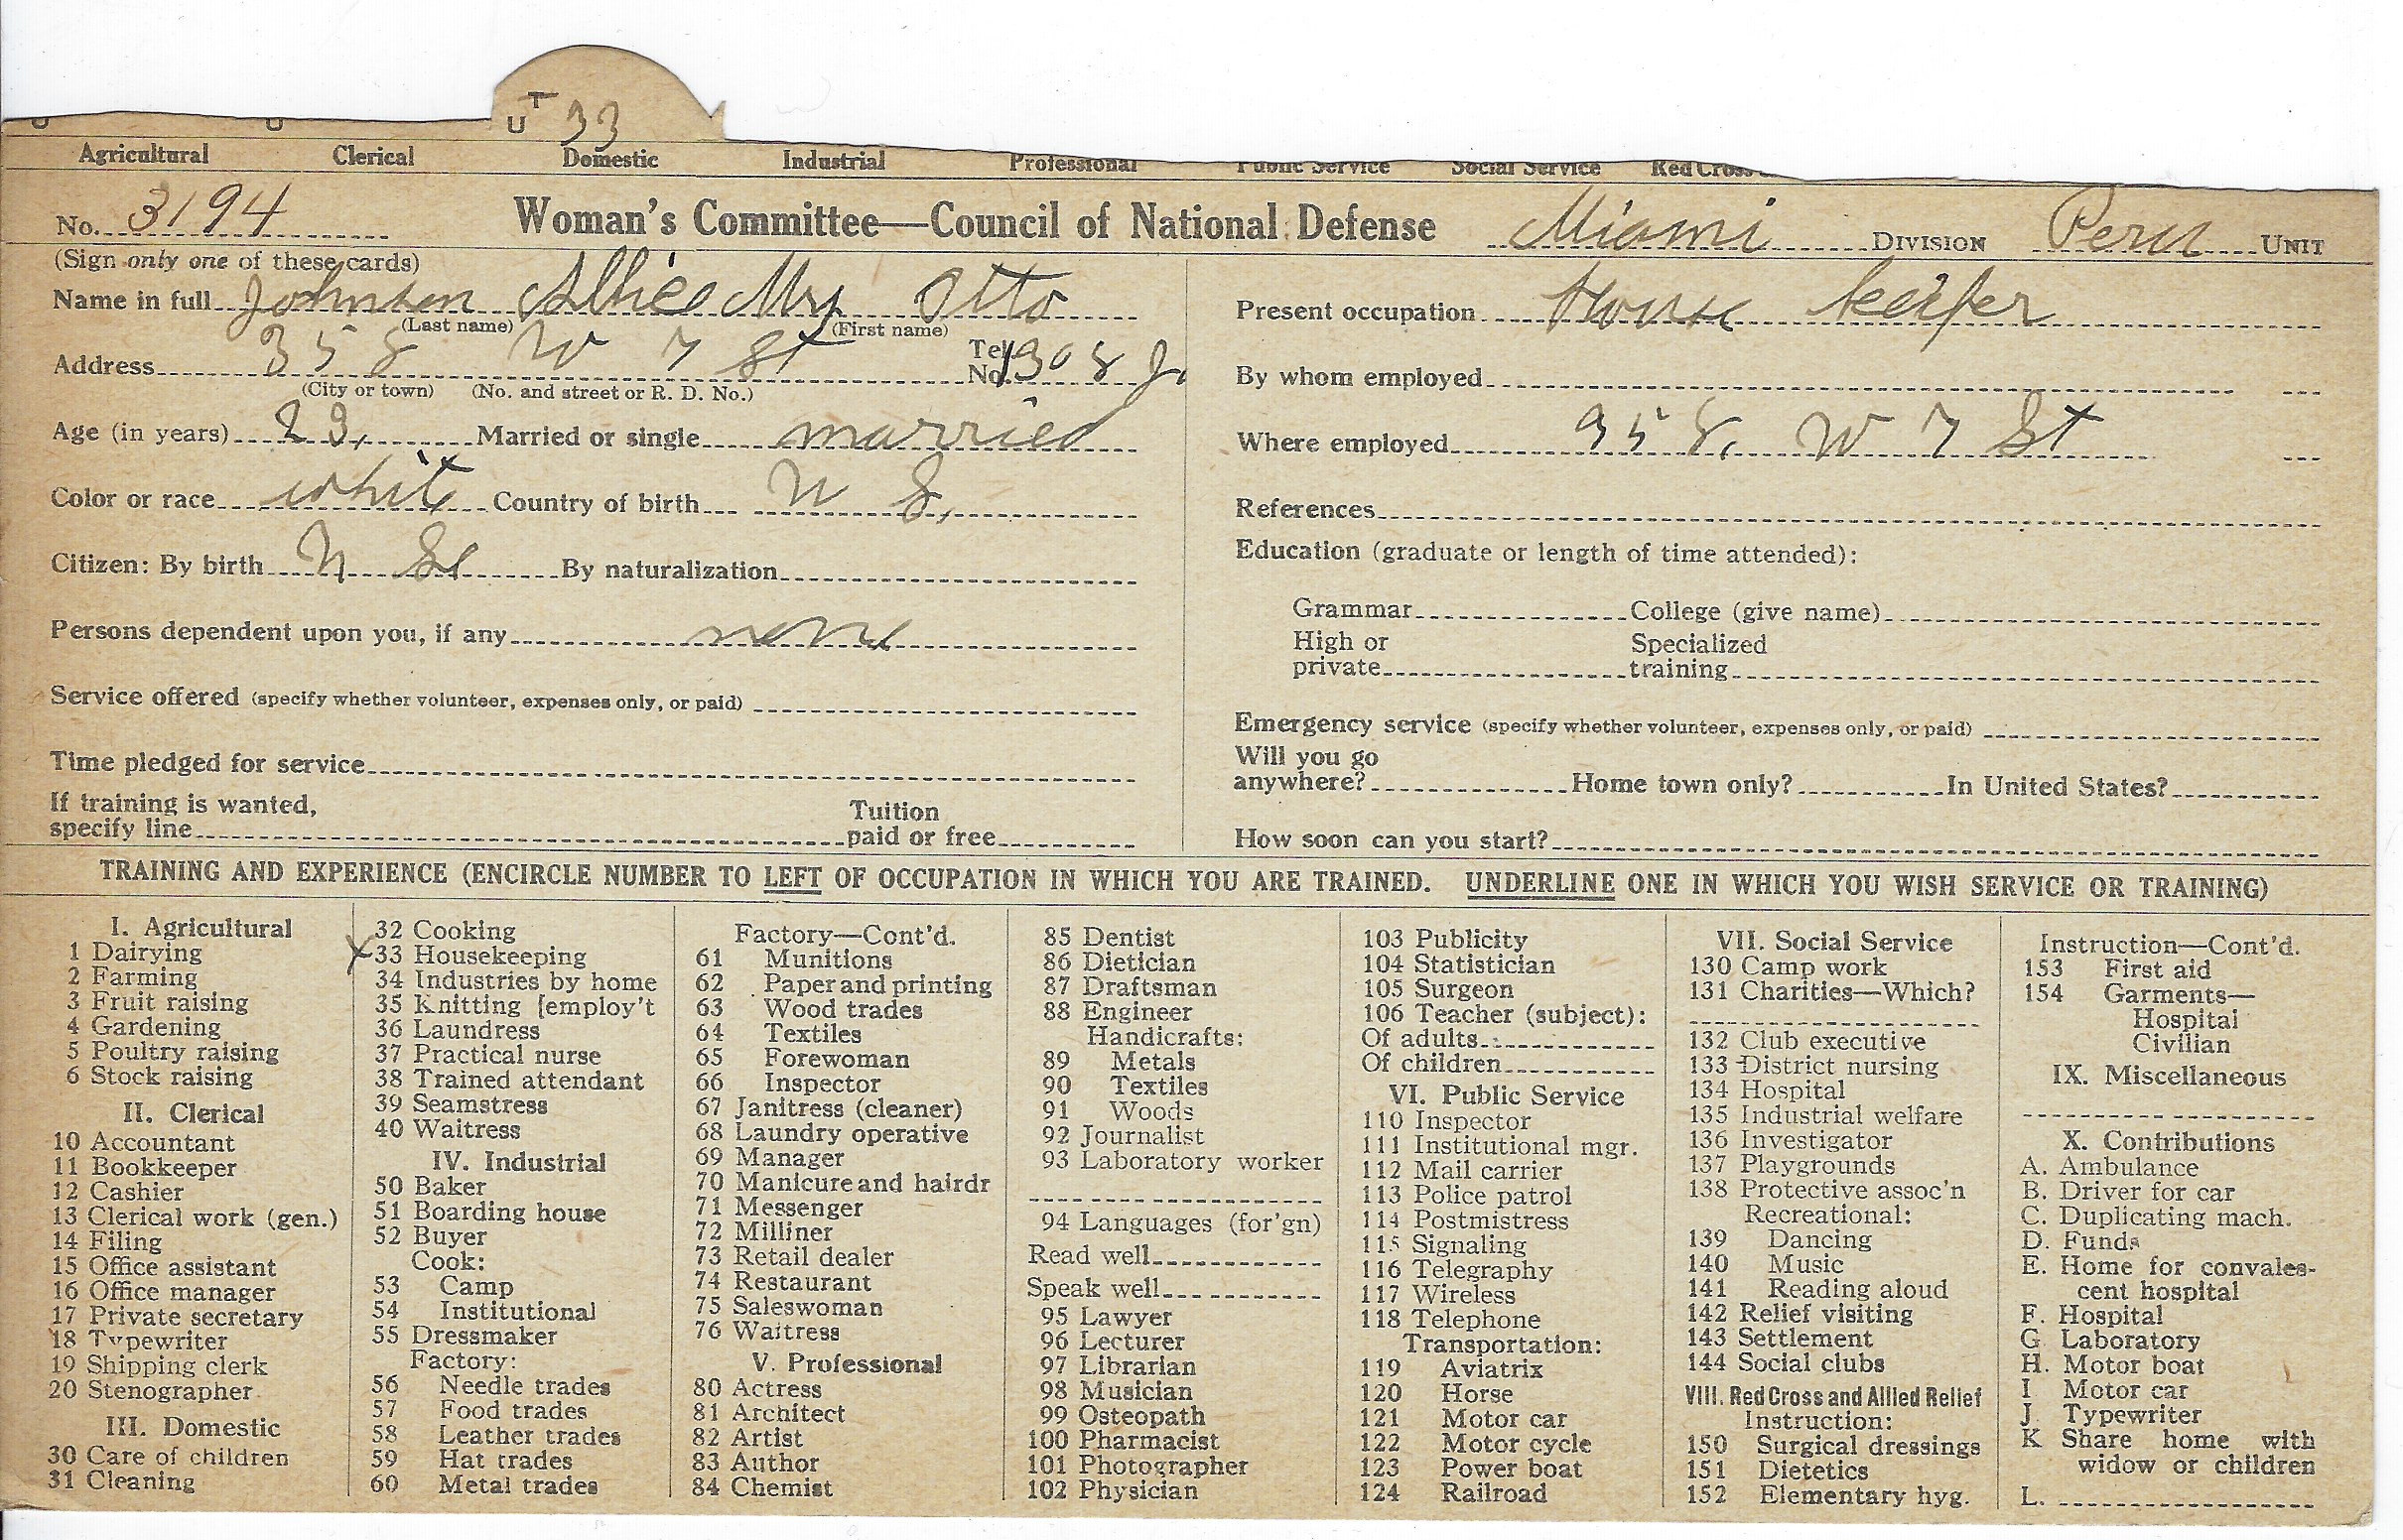 T
U 33
Agricultural Clerical Domestic Industrial Professional Public Service Social Service Red Cross
No. 3194 Woman's Committee—Council of National Defense Miami DIVISION Peru UNIT
(Sign only one of these cards)
Name in full Johnson Mrs Otto
(Last name) (First name)
Address 358 W 7 St Tel. No. 1308 J.
(City or town) (No. and street or R. D. No.)
Age (in years) 23, Married or single married
Color or race white Country of birth U S,
Citizen: By birth U S By naturalization
Persons dependent upon you, if any none
Service offered (specify whether volunteer, expenses only, or paid)
Time pledged for service
If training is wanted,
specify line
Tuition
paid or free
Present occupation House keeper
By whom employed
Where employed 358, W 7 St
References
Education (graduate or length of time attended):
Grammar College (give name)
High or
private
Specialized
training
Emergency service (specify whether volunteer, expenses only, or paid)
Will you go
anywhere? Home town only? In United States?
How soon can you start?
TRAINING AND EXPERIENCE (ENCIRCLE NUMBER TO LEFT OF OCCUPATION IN WHICH YOU ARE TRAINED. UNDERLINE ONE IN WHICH YOU WISH SERVICE OR TRAINING)
I. Agricultural
1 Dairying
2 Farming
3 Fruit raising
4 Gardening
5 Poultry raising
6 Stock raising
II. Clerical
10 Accountant
11 Bookkeeper
12 Cashier
13 Clerical work (gen.)
14 Filing
15 Office assistant
16 Office manager
17 Private secretary
18 Typewriter
19 Shipping clerk
20 Stenographer
III. Domestic
30 Care of children
31 Cleaning
32 Cooking
x33 Housekeeping
34 Industries by home
35 Knitting [employ't
36 Laundress
37 Practical nurse
38 Trained attendant
39 Seamstress
40 Waitress
IV. Industrial
50 Baker
51 Boarding house
52 Buyer
Cook:
53 Camp
54 Institutional
55 Dressmaker
Factory:
56 Needle trades
57 Food trades
58 Leather trades
59 Hat trades
60 Metal trades
Factory—Cont'd.
61 Munitions
62 Paper and printing
63 Wood trades
64 Textiles
65 Forewoman
66 Inspector
67 Janitress (cleaner)
68 Laundry operative
69 Manager
70 Manicure and hairdr
71 Messenger
72 Milliner
73 Retail dealer
74 Restaurant
75 Saleswoman
76 Waitress
V. Professional
80 Actress
81 Architect
82 Artist
83 Author
84 Chemist
85 Dentist
86 Dietician
87 Draftsman
88 Engineer
Handicrafts:
89 Metals
90 Textiles
91 Woods
92 Journalist
93 Laboratory worker
94 Languages (for'gn)
Read well
Speak well
95 Lawyer
96 Lecturer
97 Librarian
98 Musician
99 Osteopath
100 Pharmacist
101 Photographer
102 Physician
103 Publicity
104 Statistician
105 Surgeon
106 Teacher (subject):
Of adults
Of children
VI. Public Service
110 Inspector
111 Institutional mgr.
112 Mail carrier
113 Police patrol
114 Postmistress
115 Signaling
116 Telegraphy
117 Wireless
118 Telephone
Transportation:
119 Aviatrix
120 Horse
121 Motor car
122 Motor cycle
123 Power boat
124 Railroad
VII. Social Service
130 Camp work
131 Charities—Which?
132 Club executive
133 District nursing
134 Hospital
135 Industrial welfare
136 Investigator
137 Playgrounds
138 Protective assoc'n
Recreational:
139 Dancing
140 Music
141 Reading aloud
142 Relief visiting
143 Settlement
144 Social clubs
VIII. Red Cross and Allied Relief
Instruction:
150 Surgical dressings
151 Dietetics
152 Elementary hyg.
Instruction—Cont'd.
153 First aid
154 Garments—
Hospital
Civilian
IX. Miscellaneous
X. Contributions
A. Ambulance
B. Driver for car
C. Duplicating mach.
D. Funds
E. Home for convales-
cent hospital
F. Hospital
G. Laboratory
H. Motor boat
I Motor car
J. Typewriter
K Share home with
widow or children
L.